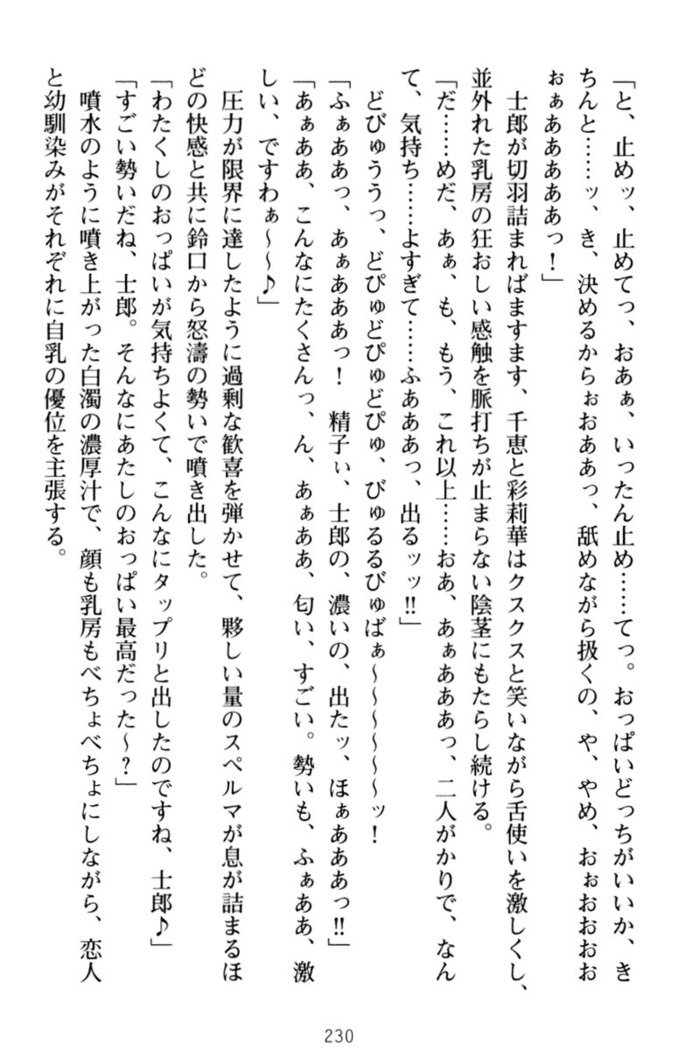 「と、止めッ、止めてっ、おあぁ、いったん止め……てっ。おっぱいどっちがいいか、き
ちんと……ッ、き、決めるからぉおああっ、舐めながら扱くの、や、やめ、おぉおおおお
ぉぁあああああっ！」
士郎が切羽詰まればますます、千恵と彩莉華はクスクスと笑いながら舌使いを激しくし、
並外れた乳房の狂おしい感触を脈打ちが止まらない陰茎にもたらし続ける。
「だ……めだ、あぁ、も、もう、これ以上……おあ、あぁあああっ、二人がかりで、なん
て、気持ち……よすぎて……ふあああっ、出るッッ‼」
どびゅううっ、どぴゅどぴゅどぴゅ、びゅるるびゅばぁ～～～～～～ッ！
「ふぁああっ、あぁあああっ！　精子ぃ、士郎の、濃いの、出たッ、ほぁあああっ‼」
「あぁああ、こんなにたくさんっ、ん、あぁああ、匂い、すごい。勢いも、ふぁああ、激
しい、ですわぁ～～♪」
圧力が限界に達したように過剰な歓喜を弾かせて、夥しい量のスペルマが息が詰まるほ
どの快感と共に鈴口から怒濤の勢いで噴き出した。
「わたくしのおっぱいが気持ちよくて、こんなにタップリと出したのですね、士郎♪」
「すごい勢いだね、士郎。そんなにあたしのおっぱい最高だった～？」
噴水のように噴き上がった白濁の濃厚汁で、顔も乳房もべちょべちょにしながら、恋人
と幼馴染みがそれぞれに自乳の優位を主張する。
230